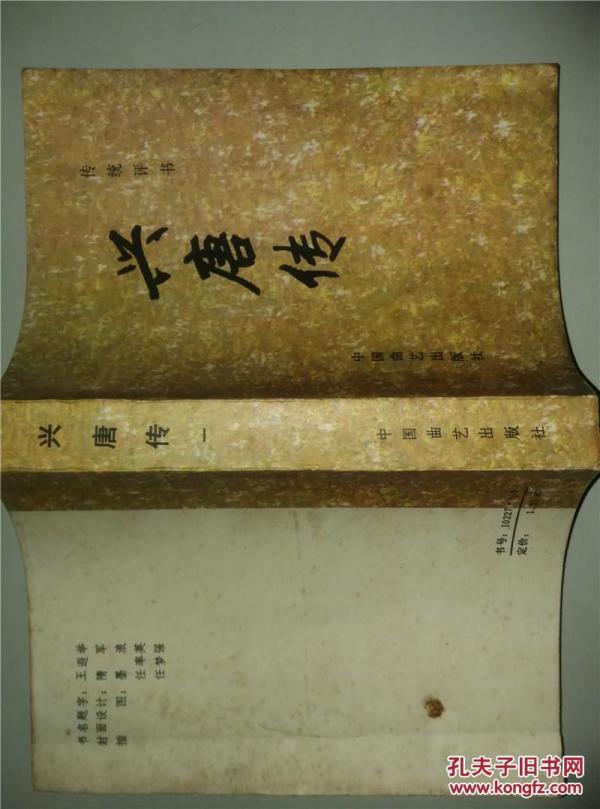 传统评书
兴唐传
中国曲艺出版社
兴唐传 一
中国曲艺出版社
书号：10227
定价：
书名题字：王遐举
封面设计：隋 军
插 图：墨 波
任率英
任梦强
孔夫子旧书网
kongfz.com